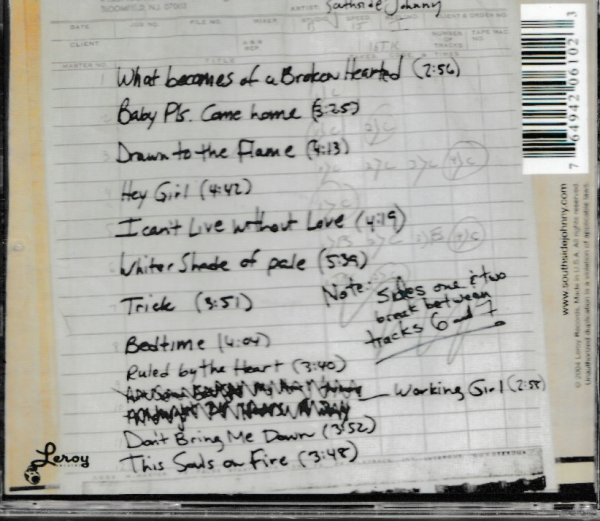 BLOOMFIELD, NJ 07003
ARTIST:
Southside Johnny
DATE
JOB NO.
FILE NO.
MIXER
SPEED
CLIENT'S ORDER NO.
CLIENT
16TK
NUMBER OF TRACKS
TAPE MAC. NO.
MASTER NO.
TITLE
What becomes of a Broken Hearted (2:56)
Baby Pls. Come home (3:25)
Drawn to the Flame (4:13)
Hey Girl (4:42)
I can't Live without Love (4:19)
Whiter Shade of pale (5:39)
Trick (3:51)
Note: Sides one & two
break between
tracks 6 and 7
Bedtime (4:04)
Ruled by the Heart (3:40)
Working Girl (2:58)
Don't Bring Me Down (3:52)
This Souls on Fire (3:48)
Leroy
7 64942 06102 3
www.southsidejohnny.com
© 2004 Leroy Records. Made in U.S.A. All rights reserved.
Unauthorized duplication is a violation of applicable laws.